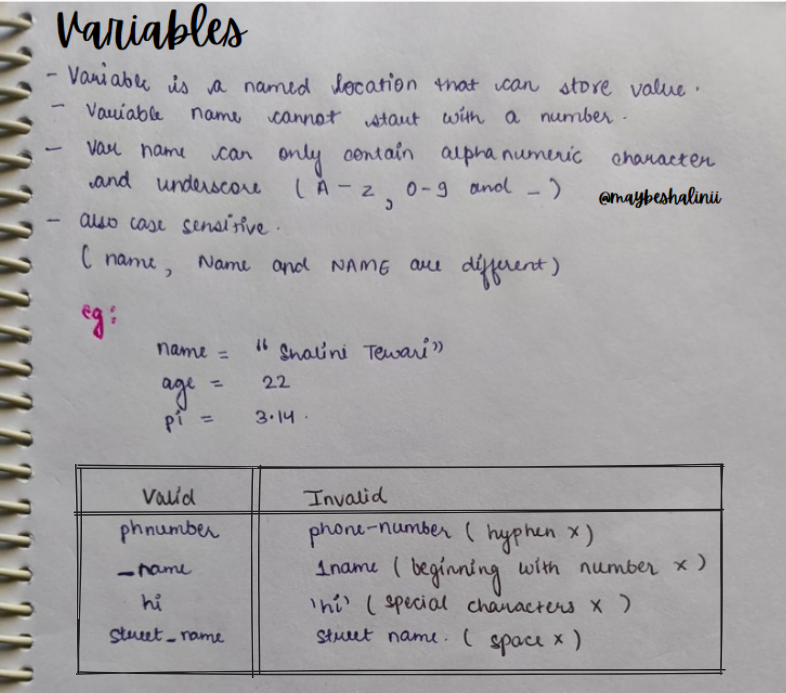 Variables
- Variable is a named location that can store value.
- Variable name cannot start with a number.
- Var name can only contain alphanumeric character
and underscore (A-z, 0-9 and _)
@maybeshalinii
- also case sensitive.
(name, Name and NAME are different)
eg:
name = "Shalini Tewari"
age = 22
pi = 3.14.
Valid Invalid
phnumber phone-number (hyphen x)
_name 1name (beginning with number x)
hi 'hi' (special characters x)
street_name street name. (space x)